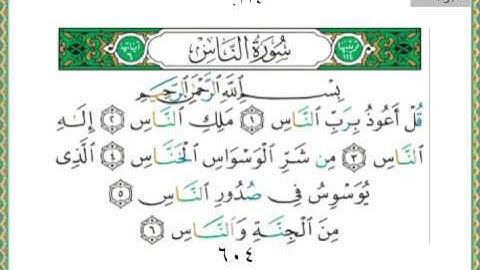 ١١٤
ترتيبها ١١٤ سُورَةُ النَّاسِ آياتها ٦
بِسْمِ اللَّهِ الرَّحْمَٰنِ الرَّحِيمِ
قُلْ أَعُوذُ بِرَبِّ النَّاسِ ١ مَلِكِ النَّاسِ ٢ إِلَٰهِ
النَّاسِ ٣ مِن شَرِّ الْوَسْوَاسِ الْخَنَّاسِ ٤ الَّذِي
يُوَسْوِسُ فِي صُدُورِ النَّاسِ ٥
مِنَ الْجِنَّةِ وَالنَّاسِ ٦
٦٠٤